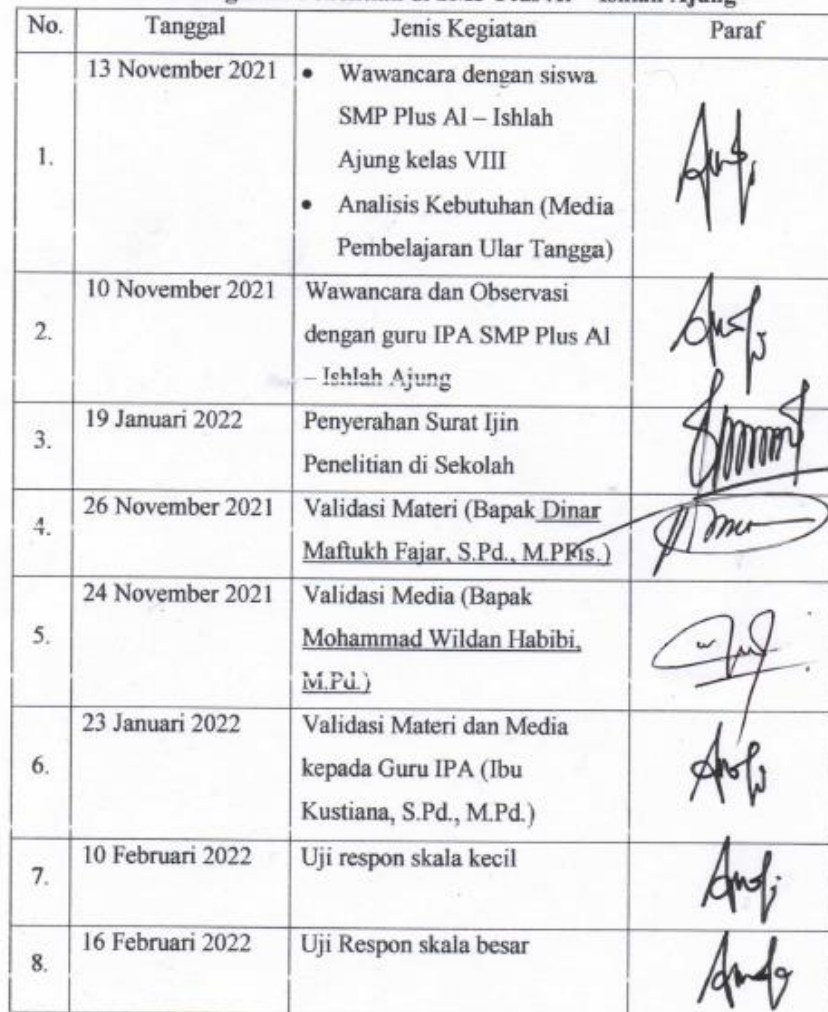 No. Tanggal Jenis Kegiatan Paraf
1. 13 November 2021 • Wawancara dengan siswa
SMP Plus Al – Ishlah
Ajung kelas VIII
• Analisis Kebutuhan (Media
Pembelajaran Ular Tangga)
2. 10 November 2021 Wawancara dan Observasi
dengan guru IPA SMP Plus Al
– Ishlah Ajung
3. 19 Januari 2022 Penyerahan Surat Ijin
Penelitian di Sekolah
4. 26 November 2021 Validasi Materi (Bapak Dinar
Maftukh Fajar, S.Pd., M.PFis.)
5. 24 November 2021 Validasi Media (Bapak
Mohammad Wildan Habibi,
M.Pd.)
6. 23 Januari 2022 Validasi Materi dan Media
kepada Guru IPA (Ibu
Kustiana, S.Pd., M.Pd.)
7. 10 Februari 2022 Uji respon skala kecil
8. 16 Februari 2022 Uji Respon skala besar